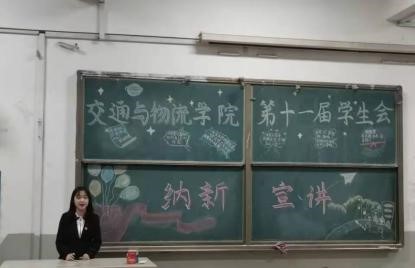 交通与物流学院 第十一届学生会
纳新 宣讲